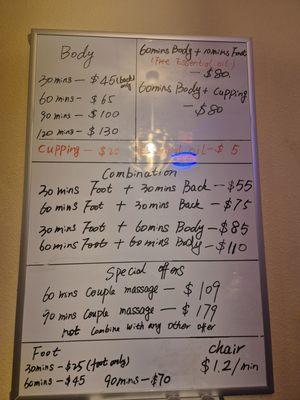 Body
30mins - $45 (back) only
60 mins - $ 65
90 mins - $ 100
120 mins - $ 130
60mins Body + 10mins Foot
(Free Essential oil)
- $80.
60mins Body + Cupping
- $80
Cupping - $20
oil - $ 5
Combination
30 mins Foot + 30mins Back - $55
60 mins Foot + 30mins Back - $75
30mins Foot + 60mins Body - $85
60mins Foot + 60 mins Body - $110
Special offers
60 mins couple massage - $ 109
90 mins couple massage - $ 179
not combine with any other offer
Foot
30mins - $25 (foot only)
60mins - $45 90mins - $70
chair
$1.2/min